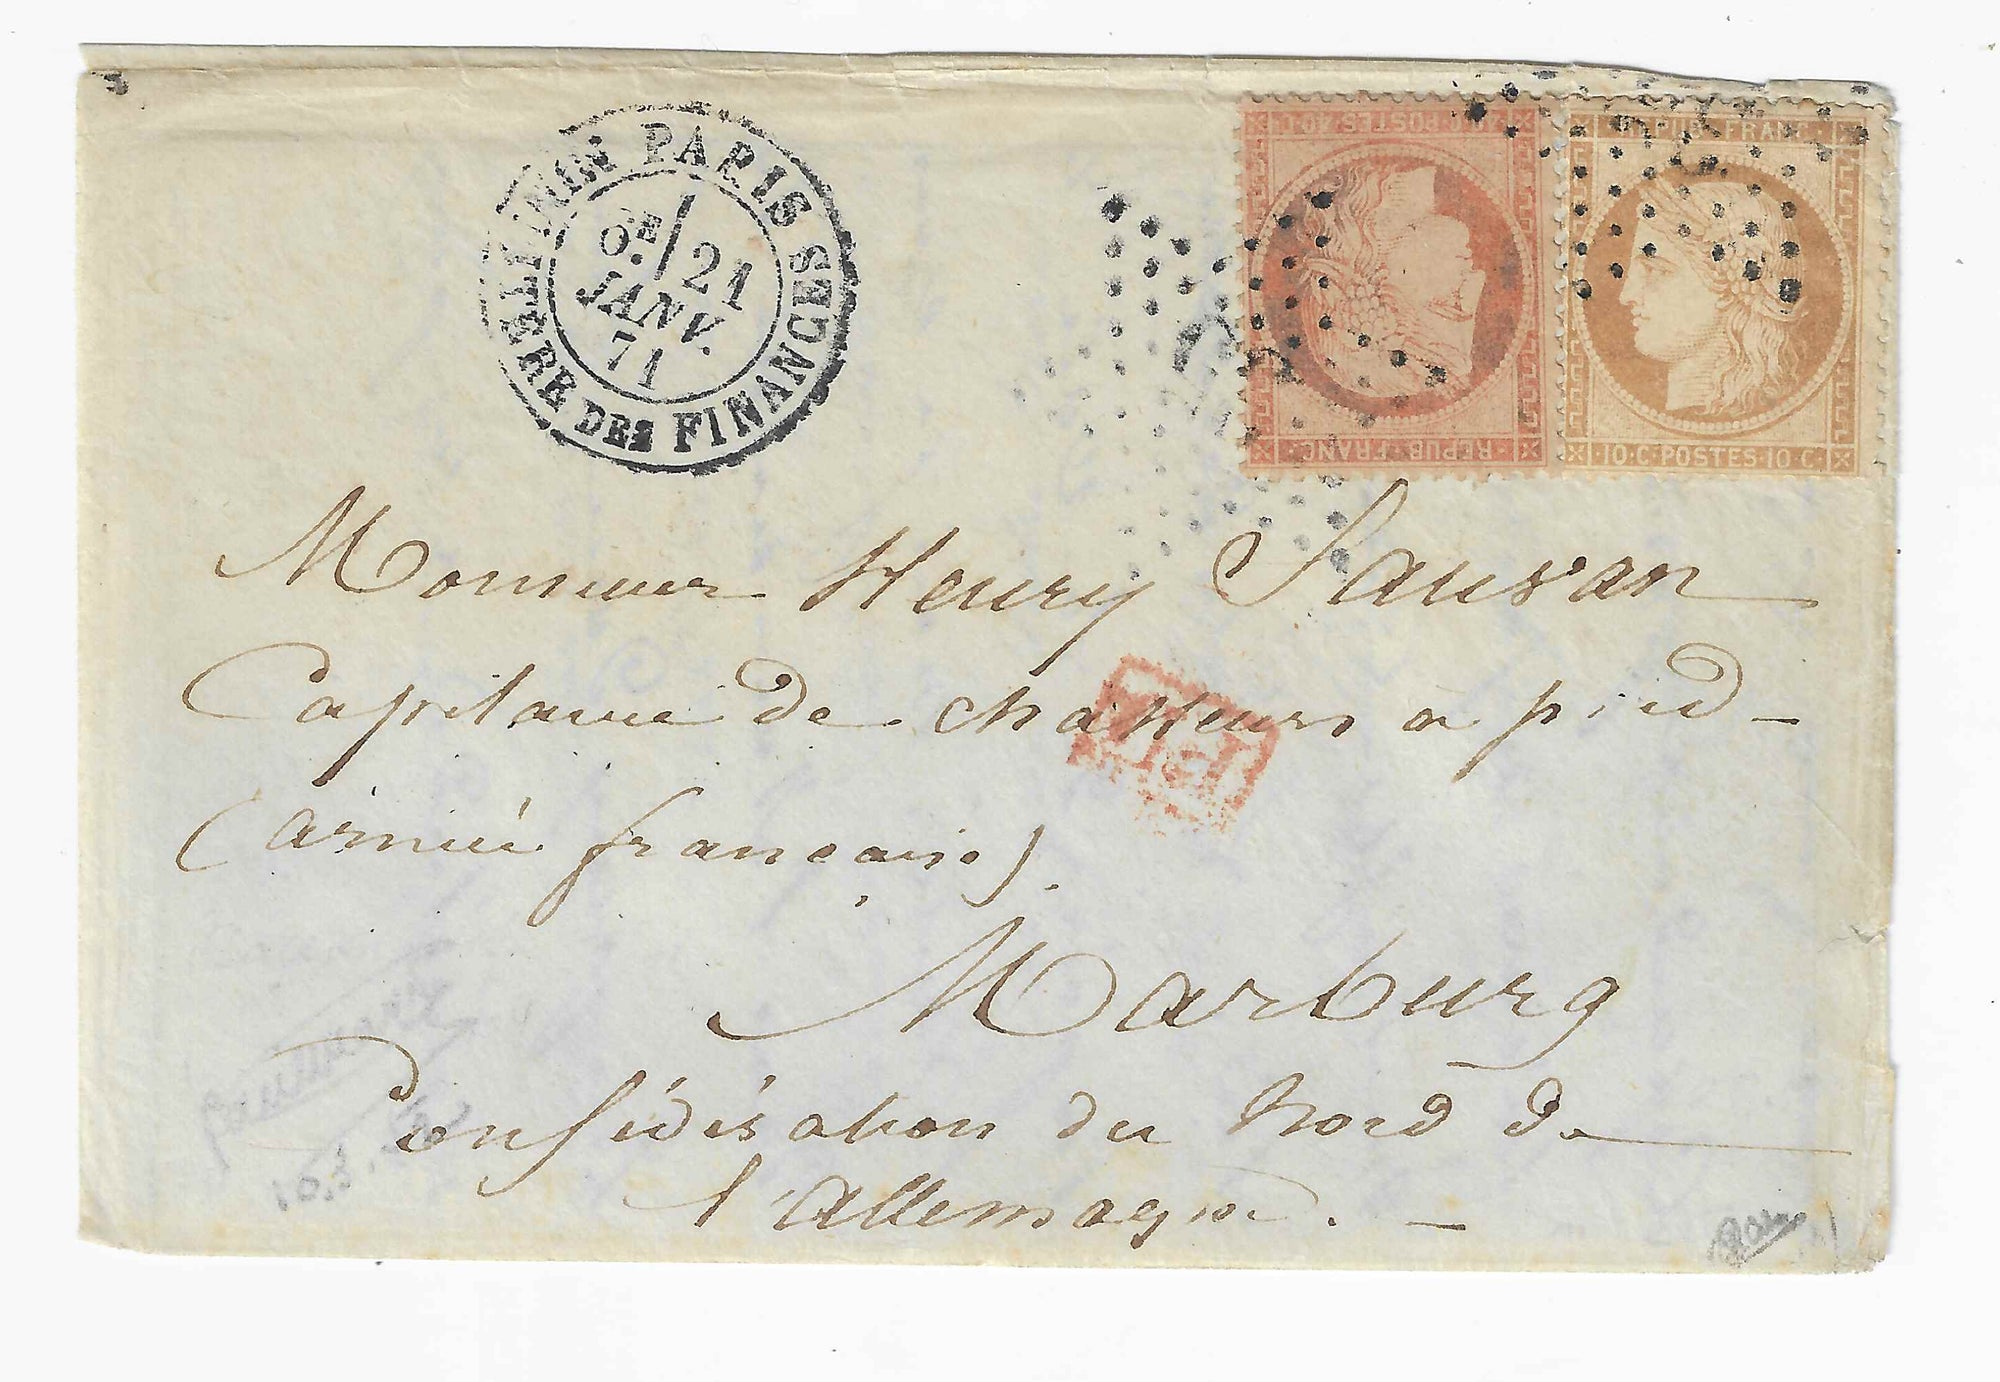 PARIS
MIN. DES FINANCES
6E / 21
JANV.
71
40·C·POSTES·40·C
REPUB·FRANC·
REPUB·FRANC·
10·C·POSTES·10·C
Monsieur Henry Sauvan
Capitaine de chasseurs à pied —
(armée française).
Marburg
Confédération du Nord de
l'Allemagne. —